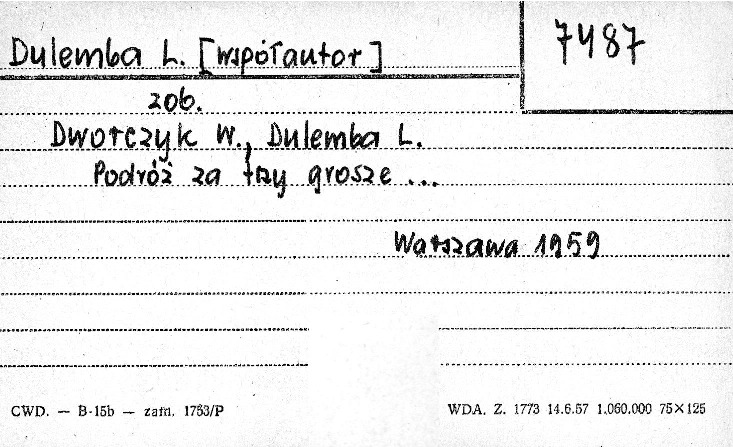 Dulemba L. [współautor]
7487
zob.
Dworczyk W., Dulemba L.
Podróż za trzy grosze ...
Warszawa 1959
CWD. — B-15b — zam. 1753/P
WDA. Z. 1773 14.6.57 1.060.000 75×125